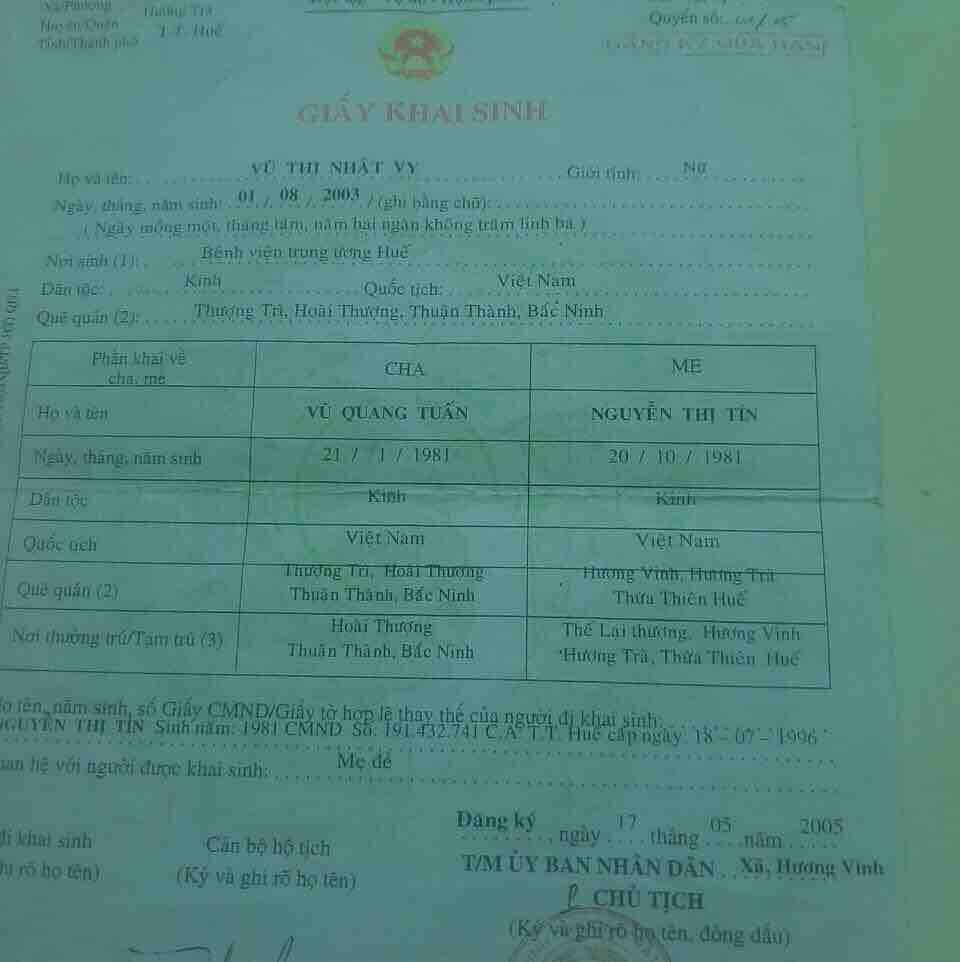 Xã/Phường Hương Trà
Huyện/Quận T.T. Huế
Tỉnh/Thành phố
Quyển số:
ĐĂNG KÝ QUÁ HẠN
GIẤY KHAI SINH
Họ và tên: VŨ THỊ NHẬT VY Giới tính: Nữ
Ngày, tháng, năm sinh: 01 / 08 / 2003 / (ghi bằng chữ):
( Ngày mồng một, tháng tám, năm hai ngàn không trăm linh ba )
Nơi sinh (1): Bệnh viện trung ương Huế
Dân tộc: Kinh Quốc tịch: Việt Nam
Quê quán (2): Thượng Trì, Hoài Thượng, Thuận Thành, Bắc Ninh
Phần khai về cha, mẹ CHA MẸ
Họ và tên VŨ QUANG TUẤN NGUYỄN THỊ TÍN
Ngày, tháng, năm sinh 21 / 1 / 1981 20 / 10 / 1981
Dân tộc Kinh Kinh
Quốc tịch Việt Nam Việt Nam
Quê quán (2) Thượng Trì, Hoài Thượng Hương Vinh, Hương Trà
Thuận Thành, Bắc Ninh Thừa Thiên Huế
Nơi thường trú/Tạm trú (3) Hoài Thượng Thế Lại thượng, Hương Vinh
Thuận Thành, Bắc Ninh Hương Trà, Thừa Thiên Huế
Họ tên, năm sinh, số Giấy CMND/Giấy tờ hợp lệ thay thế của người đi khai sinh:
NGUYỄN THỊ TÍN Sinh năm: 1981 CMND Số: 191.432.741 C.A T.T. Huế cấp ngày: 18 - 07 - 1996
uan hệ với người được khai sinh: Mẹ đẻ
Đăng ký, ngày 17 tháng 05 năm 2005
đi khai sinh Cán bộ hộ tịch T/M ỦY BAN NHÂN DÂN Xã, Hương Vinh
hi rõ họ tên) (Ký và ghi rõ họ tên) CHỦ TỊCH
(Ký và ghi rõ họ tên, đóng dấu)